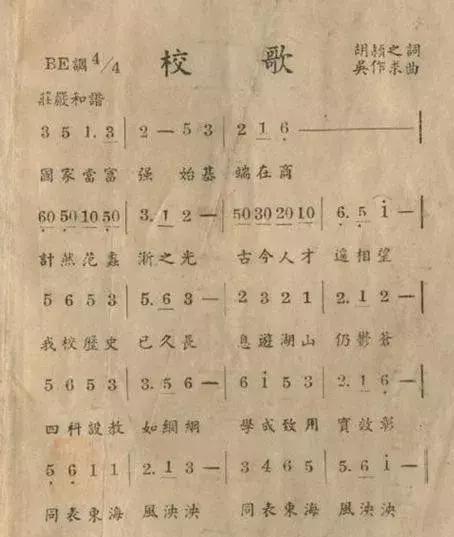 校歌
BE調 4/4
胡穎之詞
吳作求曲
莊嚴和諧
3 5 1. 3 | 2 — 5 3 | 2 1 6 ——— |
國家富富强 始基端在商
60 50 10 50 | 3. 1 2 — | 50 30 20 10 | 6. 5 i — |
計然范蠡浙之光 古今人才遥相望
5 6 5 3 | 5. 6 3 — | 2 3 2 1 | 2. 1 2 — |
我校歷史已久長 息遊湖山仍鬱蒼
5 6 5 3 | 3. 5 6 — | 6 i 5 3 | 2. 1 6 — |
四科設教如綱網 學成致用實效彰
5 6 1 1 | 2. 1 3 — | 3 4 6 5 | 5. 6 i — |
同表東海風泱泱 同表東海風泱泱